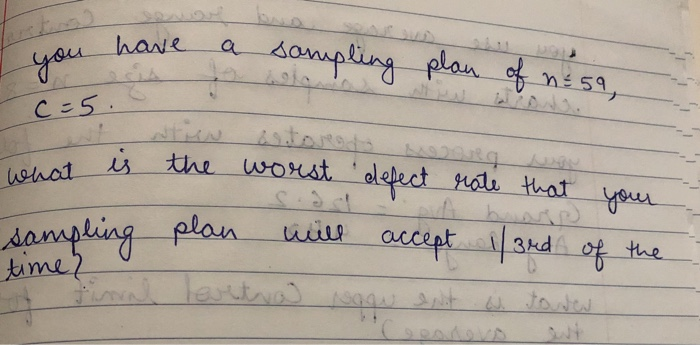 you have a sampling plan of n = 59,
c = 5.
what is the worst defect rate that your
sampling plan will accept 1/3rd of the
time?